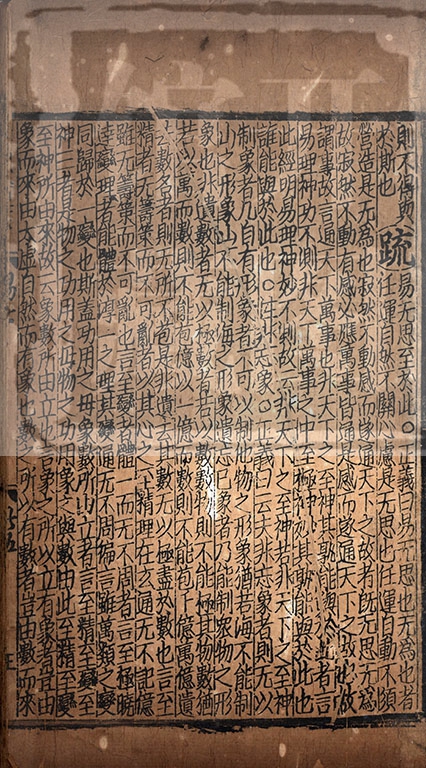 則不得與 疏 易无思至於此○正義曰易无思也无為也者
於斯也 任運自然不關心慮是无思也任運自動不須
營造是无為也寂然不動感而遂通天下之故者既无思无為
故寂然不動有感必應萬事皆通是感而遂通天下之故也故
謂事故言通天下萬事也非天下之至神其孰能與於此者言
易理神功不測非天下萬事之中至極神妙其孰能與於此也
此經明易理神妙不測故云非天下之至神若非天下之至神
誰能與於此也○注非忘象○正義曰云夫非忘象者則无以
制象者凡自有形象者不可以制他物之形象猶若海不能制
山之形象山不能制海之形象遺忘己象者乃能制眾物之形
象也非遺數者无以極數者若以數數物則不能極其物數猶
若以萬而數則不能包億以一億而數則不能包千億萬億遺
去數名者則无所不包是非遺去其數无以極盡於數也言至
精者无籌策而不可亂者以其心之至精理在玄通无不記億
雖无籌策而不可亂也言至變者體一而无不周者言至極曉
達變理者能體於淳一之理其變通无不周徧言雖萬類之變
同歸於一變也斯蓋功用之母象數所由立者言至精至變至
神三者是物之功用之母物之功用象之與數由此至精至變
至神所由來故云象數所由立也言象之所以立有象者豈由
象而來由太虛自然而有象也數之所以有數者豈由數而來